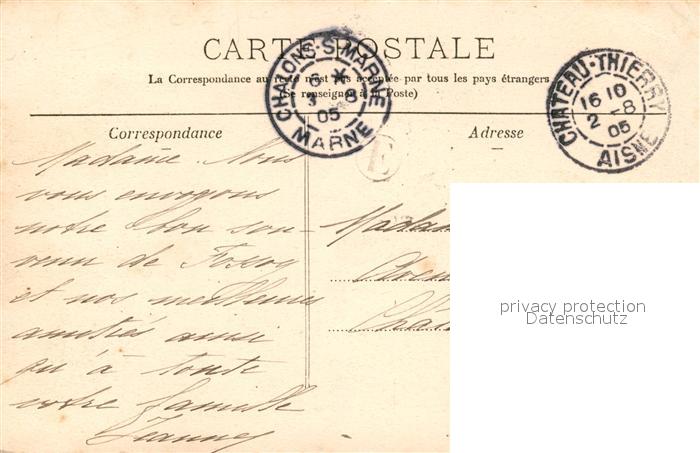 CARTE POSTALE
La Correspondance au recto n'est pas acceptée par tous les pays étrangers
(Se renseigner à la Poste)
CHALONS-S-MARNE
05
MARNE
CHATEAU-THIERRY
16 10
2 -8
05
AISNE
E
Correspondance
Adresse
Madame Nous
vous envoyons
notre bon sou-
venir de Fossoy
et nos meilleures
amitiés ainsi
qu'à toute
votre famille
Jeanney
Madam
Chem
Châ
privacy protection
Datenschutz